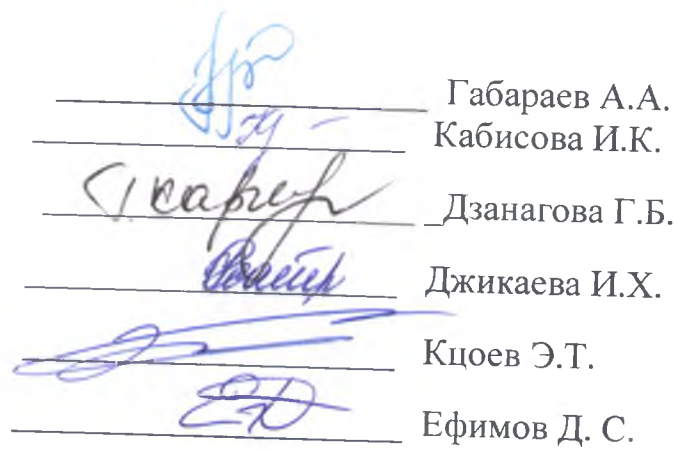 Габараев А.А.
Кабисова И.К.
_Дзанагова Г.Б.
Джикаева И.Х.
Кцоев Э.Т.
Ефимов Д. С.